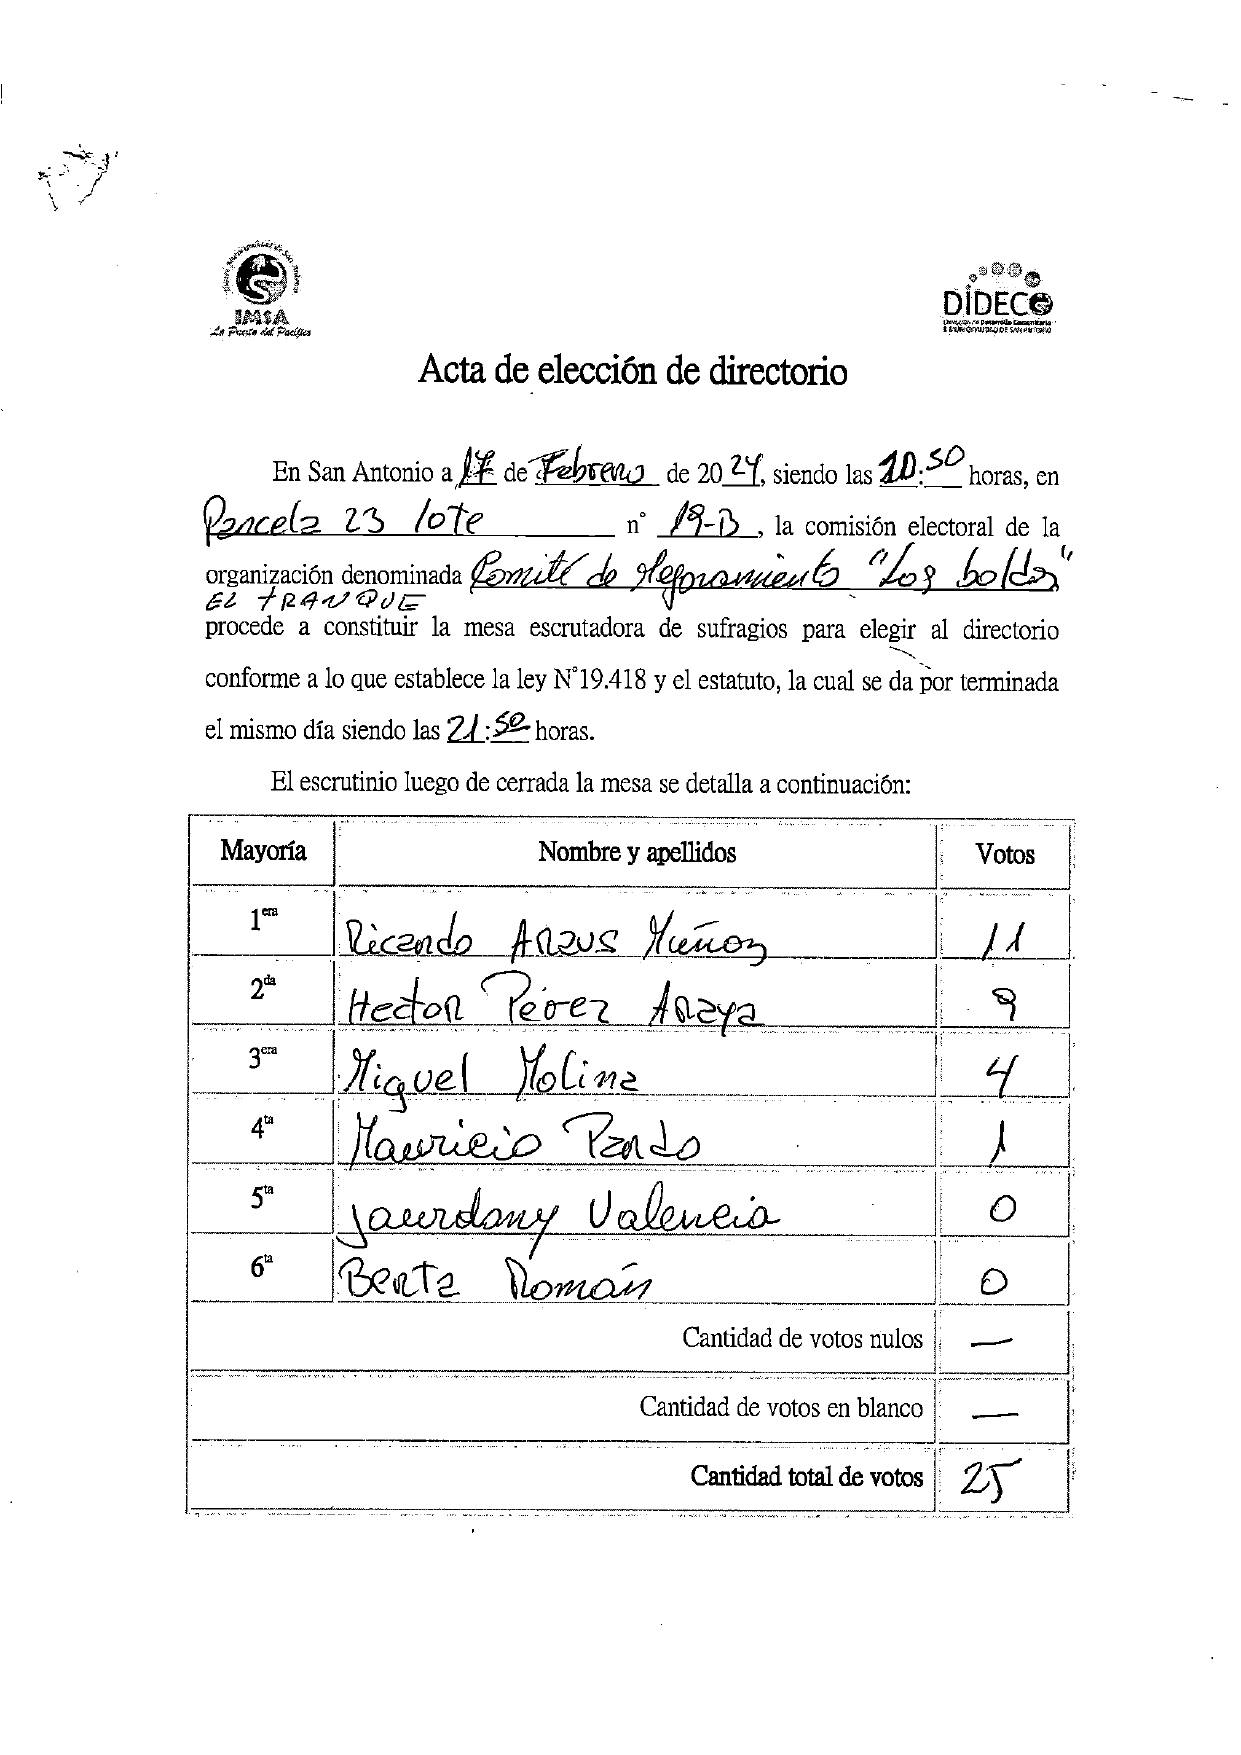 IMSA
La Puerta del Pacífico
DIDECO
Acta de elección de directorio
En San Antonio a 17 de Febrero de 2024, siendo las 20:50 horas, en
Parcela 23 lote n° 19-B, la comisión electoral de la
organización denominada Comité de Mejoramiento "Los boldos"
EL TRANQUE
procede a constituir la mesa escrutadora de sufragios para elegir al directorio
conforme a lo que establece la ley N°19.418 y el estatuto, la cual se da por terminada
el mismo día siendo las 21:50 horas.
El escrutinio luego de cerrada la mesa se detalla a continuación:
Mayoría Nombre y apellidos Votos
1era Ricardo Muñoz 11
2da Hector Pérez Araya 9
3era Miguel Molina 4
4ta Mauricio Pardo 1
5ta Jaurdany Valencia 0
6ta Berta Román 0
Cantidad de votos nulos —
Cantidad de votos en blanco —
Cantidad total de votos 25